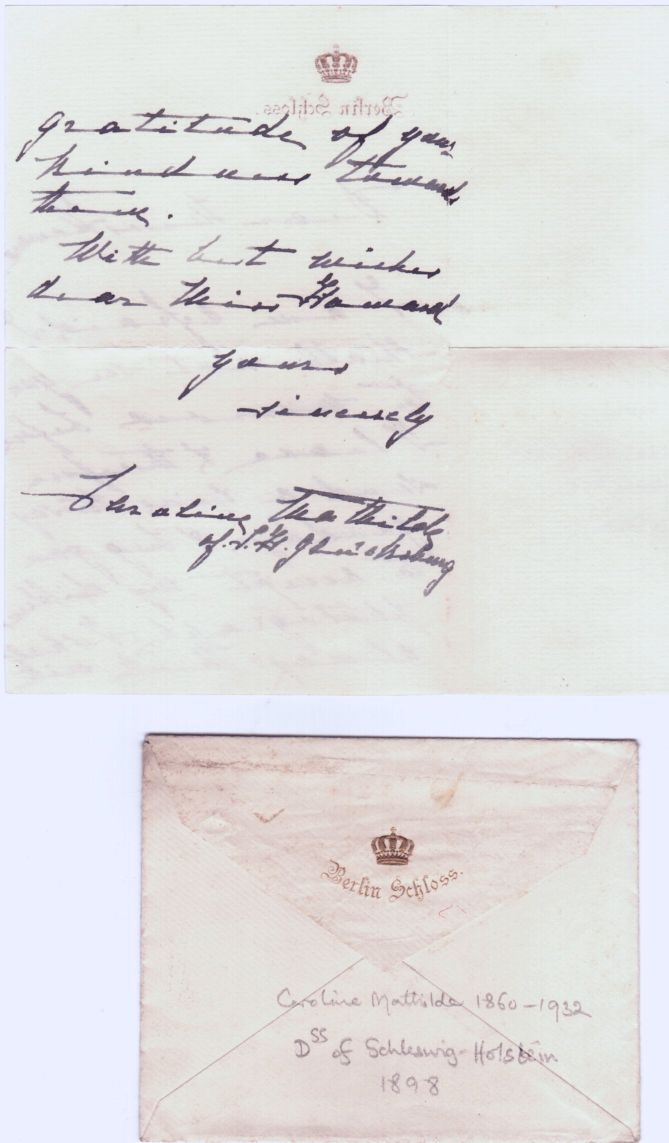 Berlin Schloss.
gratitude of your
kindness towards
them.
With best wishes
dear Miss Howard
yours
sincerely
Caroline Mathilde
of S. H. Glücksburg
Berlin Schloss.
Caroline Mathilde 1860-1932
Dss of Schleswig-Holstein
1898